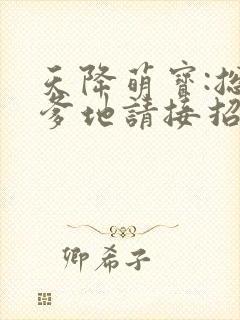 天降萌寶:總
爹地請接招
卿希子